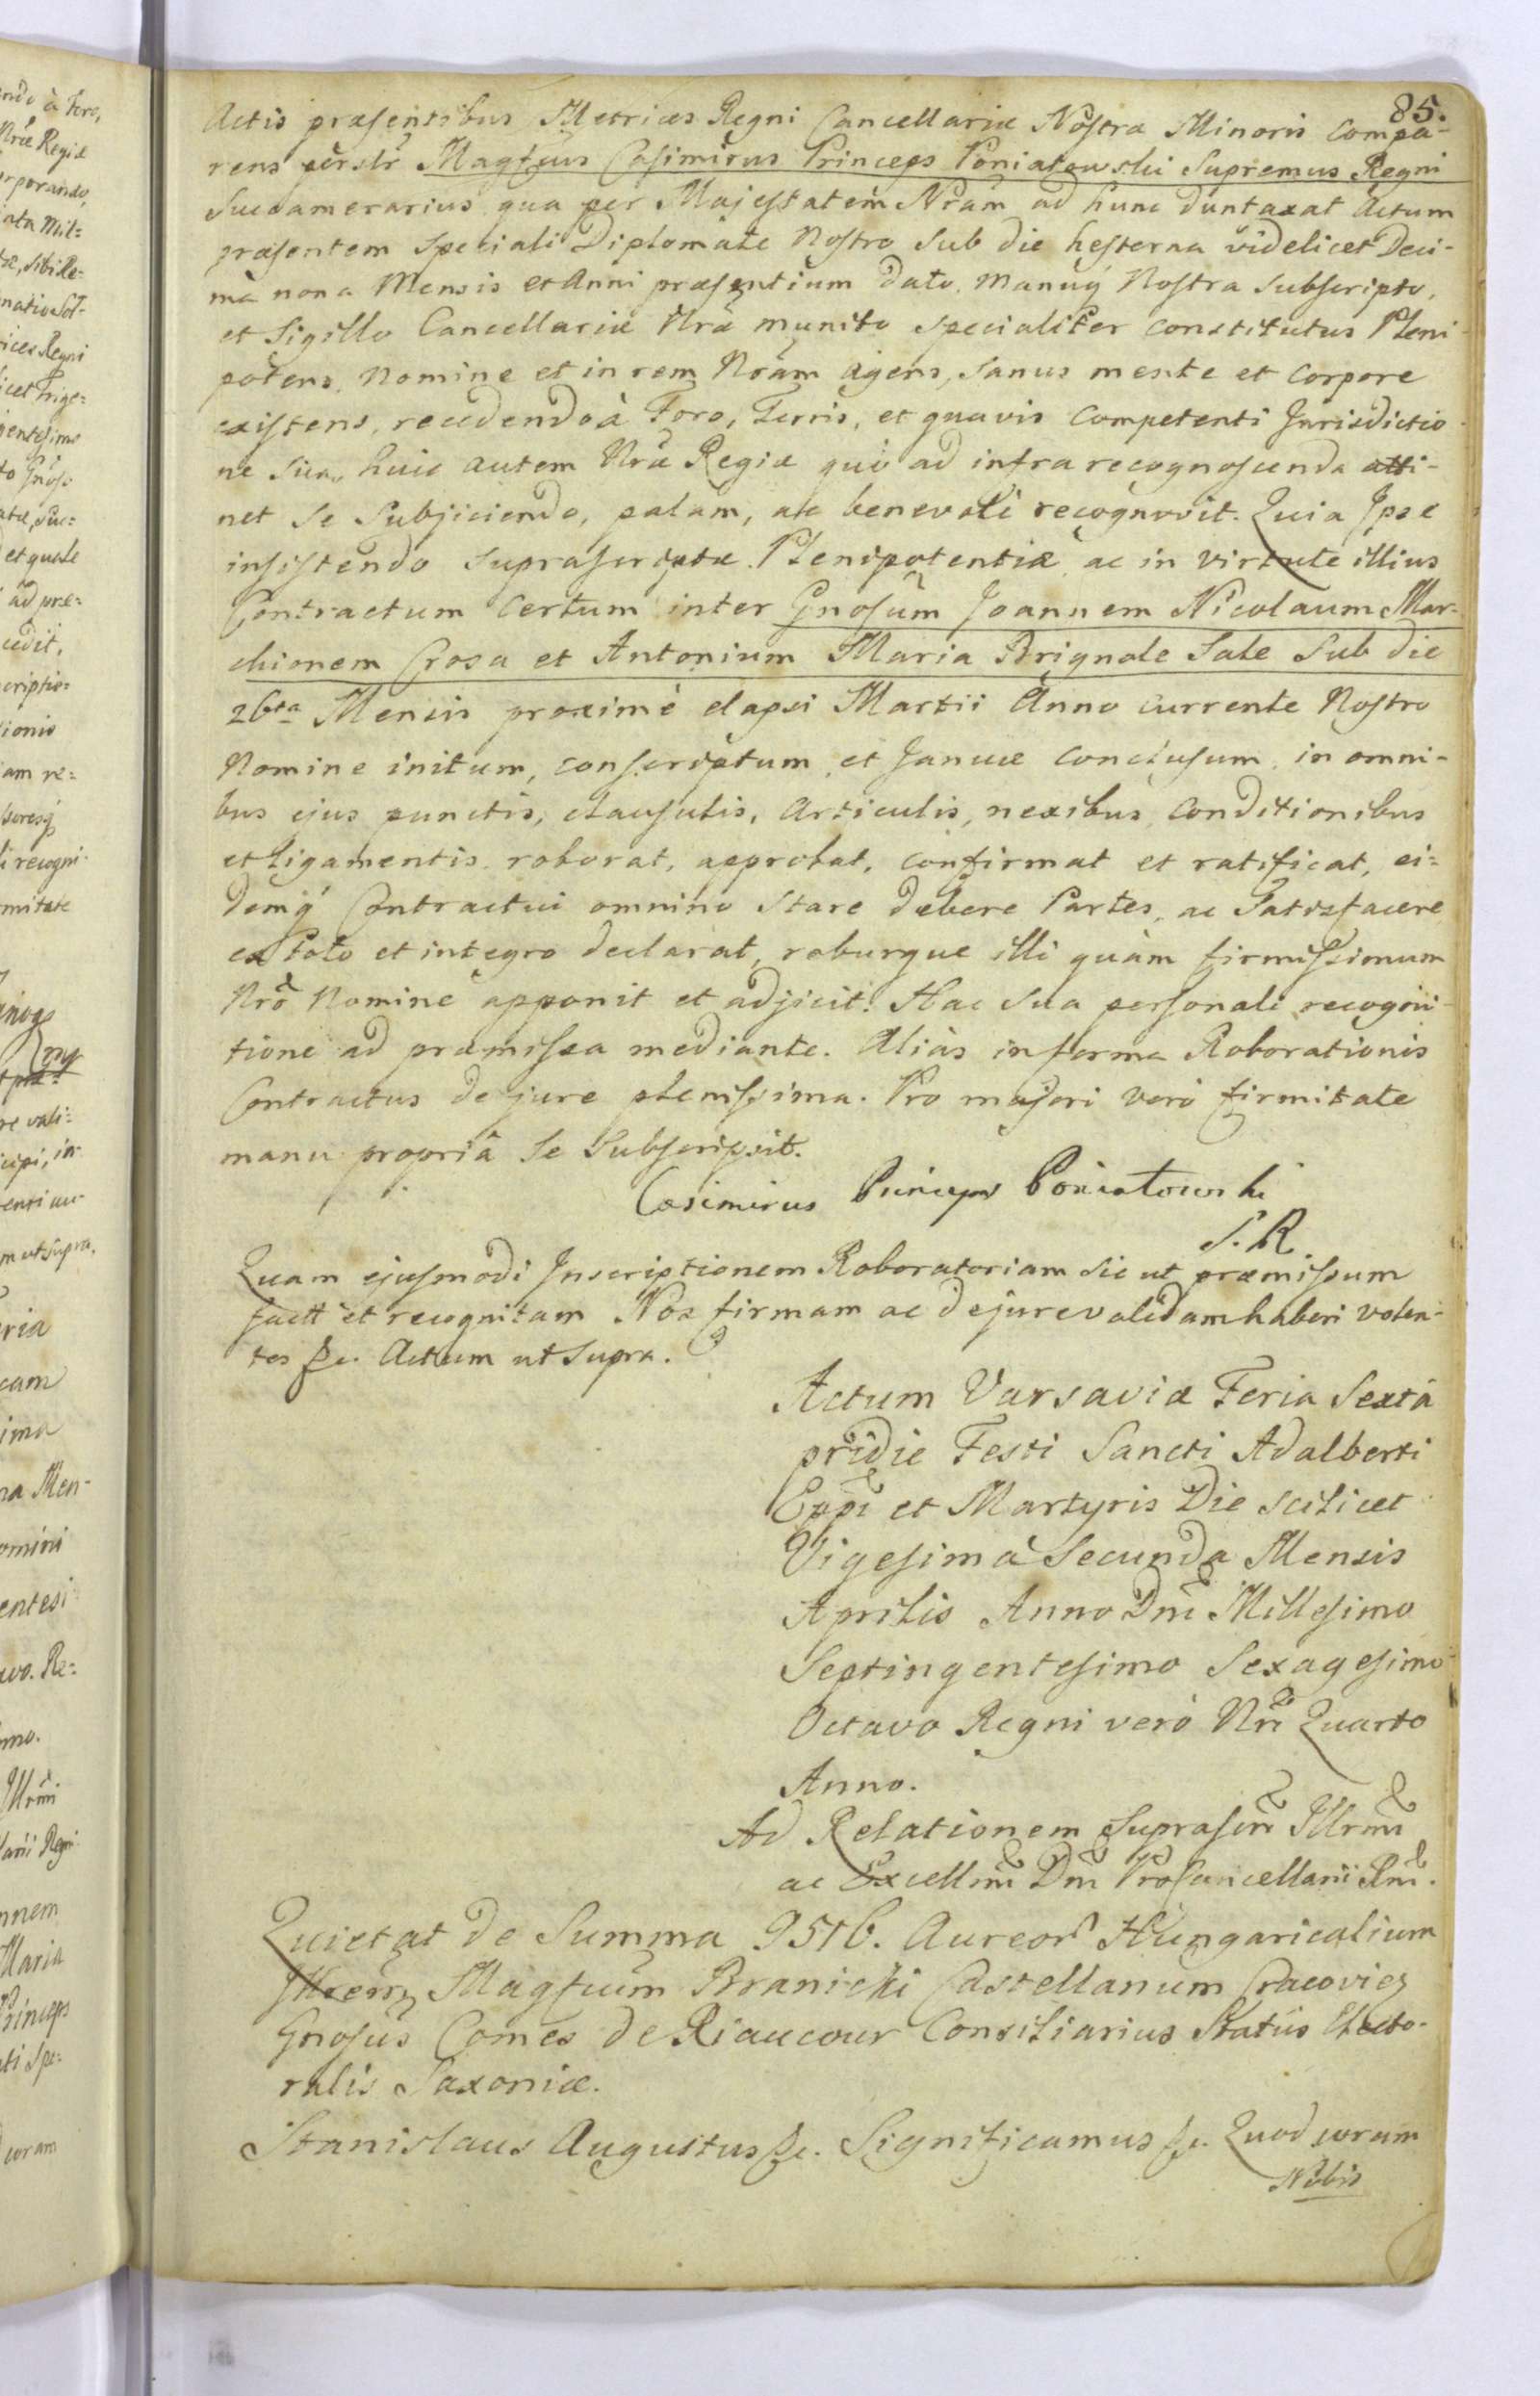 85.
Actis præsentibus Metrices Regni Cancellariæ Nostræ Minoris Compa-
rens persr̃ Magf̃cus Casimirus Princeps Poniatowski Supremus Regni
Succamerarius qua per Majestatem Nrãm ad hunc duntaxat Actum
præsentem speciali Diplomate Nostro sub die hesterna videlicet Deci-
mâ nona Mensis et Anni præsentium dato, manuq́ Nostra subscripto,
et Sigillo Cancellariæ Nrã munito specialiter constitutus Pleni-
potens, nomine et in rem Nrãm agens, sanus mente et corpore
existens, recedendo à Foro, Terris, et quavis Competenti Jurisdictio-
ne sua, huic autem Nrã Regiæ quò ad infra recognoscenda atti-
net se subjiciendo, palam, ac benevolè recognovit. Quia Ipse
insistendo suprascriptæ Plenipotentiæ, ac in virtute illius
Contractum certum inter Gnosũm Joannem Nicolaum Mar-
chionem Crosa et Antonium Maria Brignole Sale sub die
26ta Mensis proximè elapsi Martii Anno currente Nostro
Nomine initum, conscriptum, et Januæ conclusum, in omni-
bus ejus punctis, clausulis, Articulis, nexibus, conditionibus
et ligamentis roborat, approbat, confirmat et ratificat, ei-
demq́ Contractui omnino stare debere Partes, ac Satisfacere
ex toto et integro declarat, roburque illi quàm firmissimum
Nrõ Nomine apponit et adjicit. Hac sua personali recogni-
tione ad præmissa mediante. Aliàs in forma Roborationis
Contractus de jure plenissima. Pro majori verò firmitate
manu propriâ se Subscripsit.
Casimirus Princeps Poniatowski
S. R
Quam ejusmodi Inscriptionem Roboratoriam sic ut præmissum
factt et recognitam Nos firmam ac de jure validam haberi volen-
tes &c. Actum ut supra.
Actum Varsaviæ Feria Sextâ
pridie Festi Sancti Adalberti
Epp̃i et Martyris Die scilicet
Vigesimâ Secunda Mensis
Aprilis Anno Dñi Millesimo
Septingentesimo Sexagesimo
Octavo Regni verò Nrĩ Quarto
Anno.
Ad Relationem suprascrĩ Illrmĩ
ac Excellmĩ Dñi ProCancellarii Rnĩ.
Quietat de Summa 9516. Aureor̃ Hungaricalium
Magf̃cum Branicki Castellanum Cracovieñ
Gnosũs Comes de Riaucour Consiliarius Statûs Electo-
ralis Saxoniæ.
Stanislaus Augustus &c. Significamus &c. Quod coram
Nobis